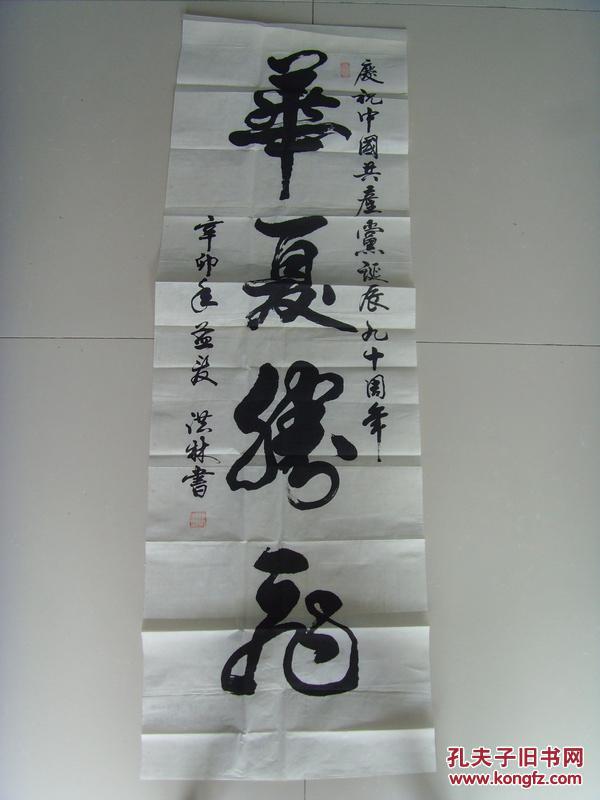 慶祝中國共產黨誕辰九十周年
華夏騰飛
辛卯年孟夏 洪林書
孔夫子旧书网
www.kongfz.com